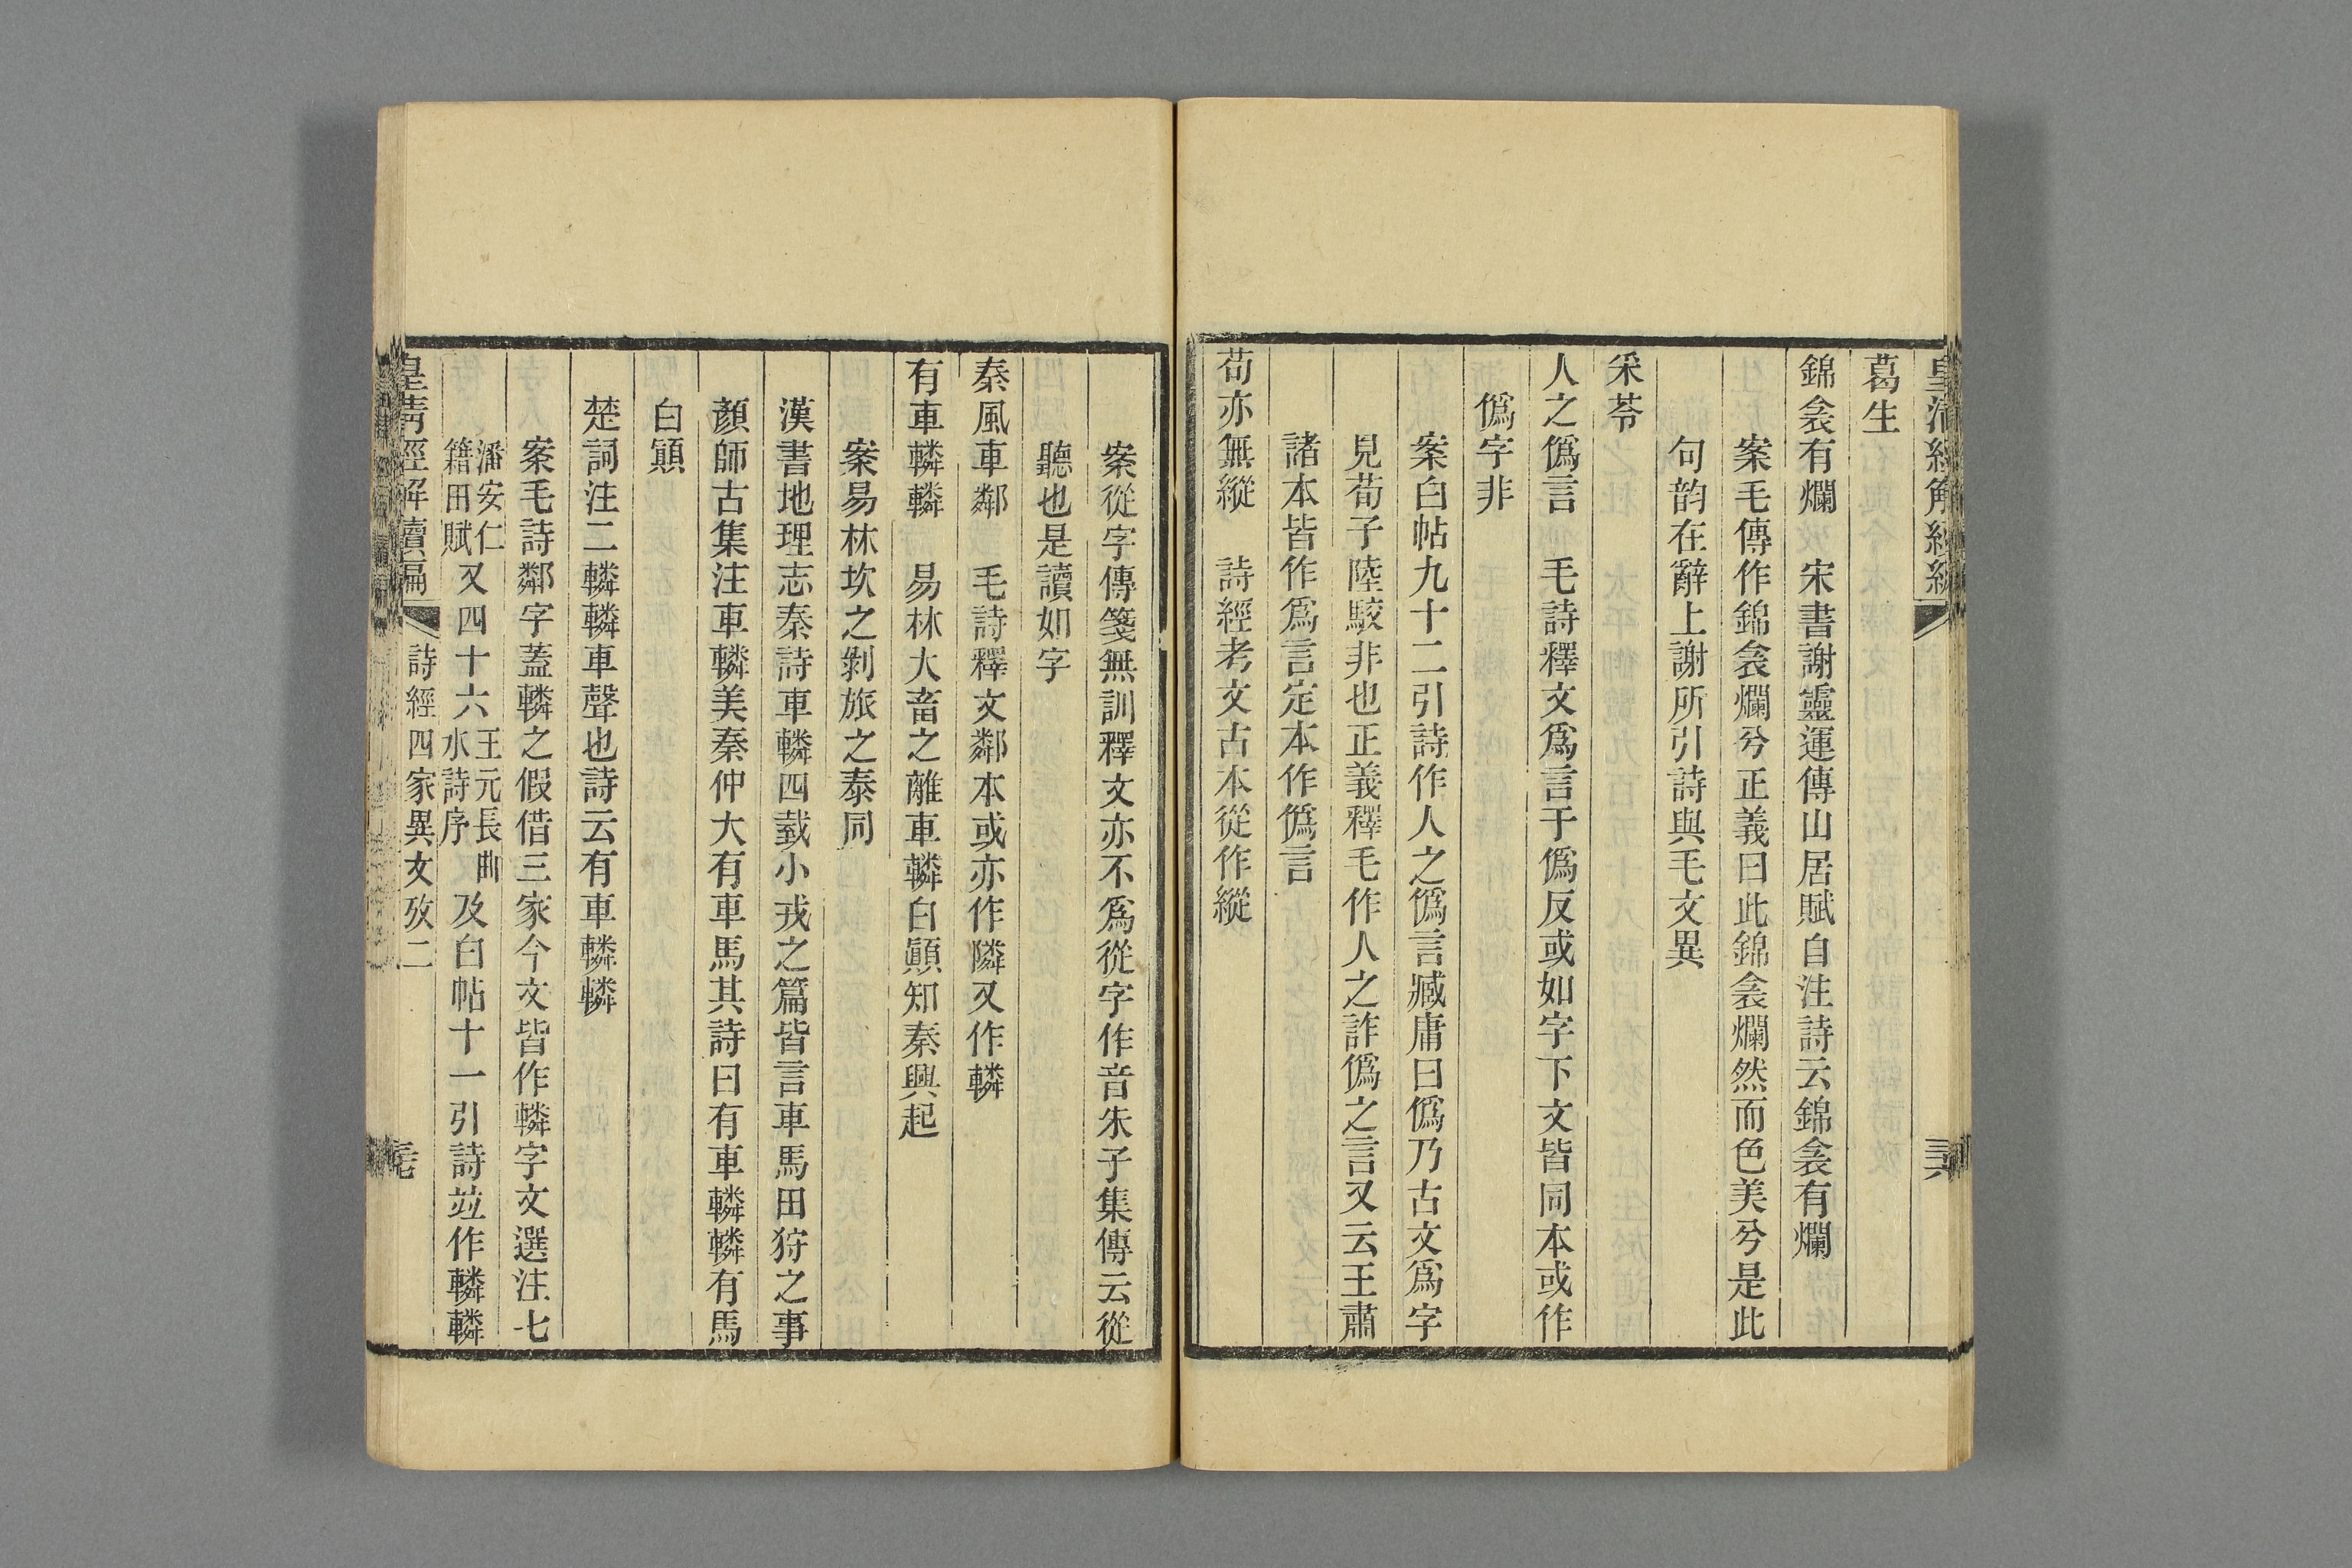 葛生
錦衾有爛　宋書謝靈運傳山居賦自注詩云錦衾有爛
案毛傳作錦衾爛兮正義曰此錦衾爛然而色美兮是此
句韵在辭上謝所引詩與毛文異
采苓
人之僞言　毛詩釋文爲言于僞反或如字下文皆同本或作
僞字非
案白帖九十二引詩作人之僞言臧庸曰僞乃古文爲字
見荀子陸駁非也正義釋毛作人之詐僞之言又云王肅
諸本皆作爲言定本作僞言
苟亦無縱　詩經考文古本從作縱
案從字傳箋無訓釋文亦不爲從字作音朱子集傳云從
聽也是讀如字
秦風車鄰　毛詩釋文鄰本或亦作隣又作轔
有車轔轔　易林大畜之離車轔白顚知秦興起
案易林坎之剝旅之泰同
漢書地理志秦詩車轔四臷小戎之篇皆言車馬田狩之事
顏師古集注車轔美秦仲大有車馬其詩曰有車轔轔有馬
白顚
楚詞注二轔轔車聲也詩云有車轔轔
案毛詩鄰字蓋轔之假借三家今文皆作轔字文選注七
潘安仁籍田賦又四十六王元長曲水詩序及白帖十一引詩竝作轔轔
皇淸經解續編
詩經四家異文攷二